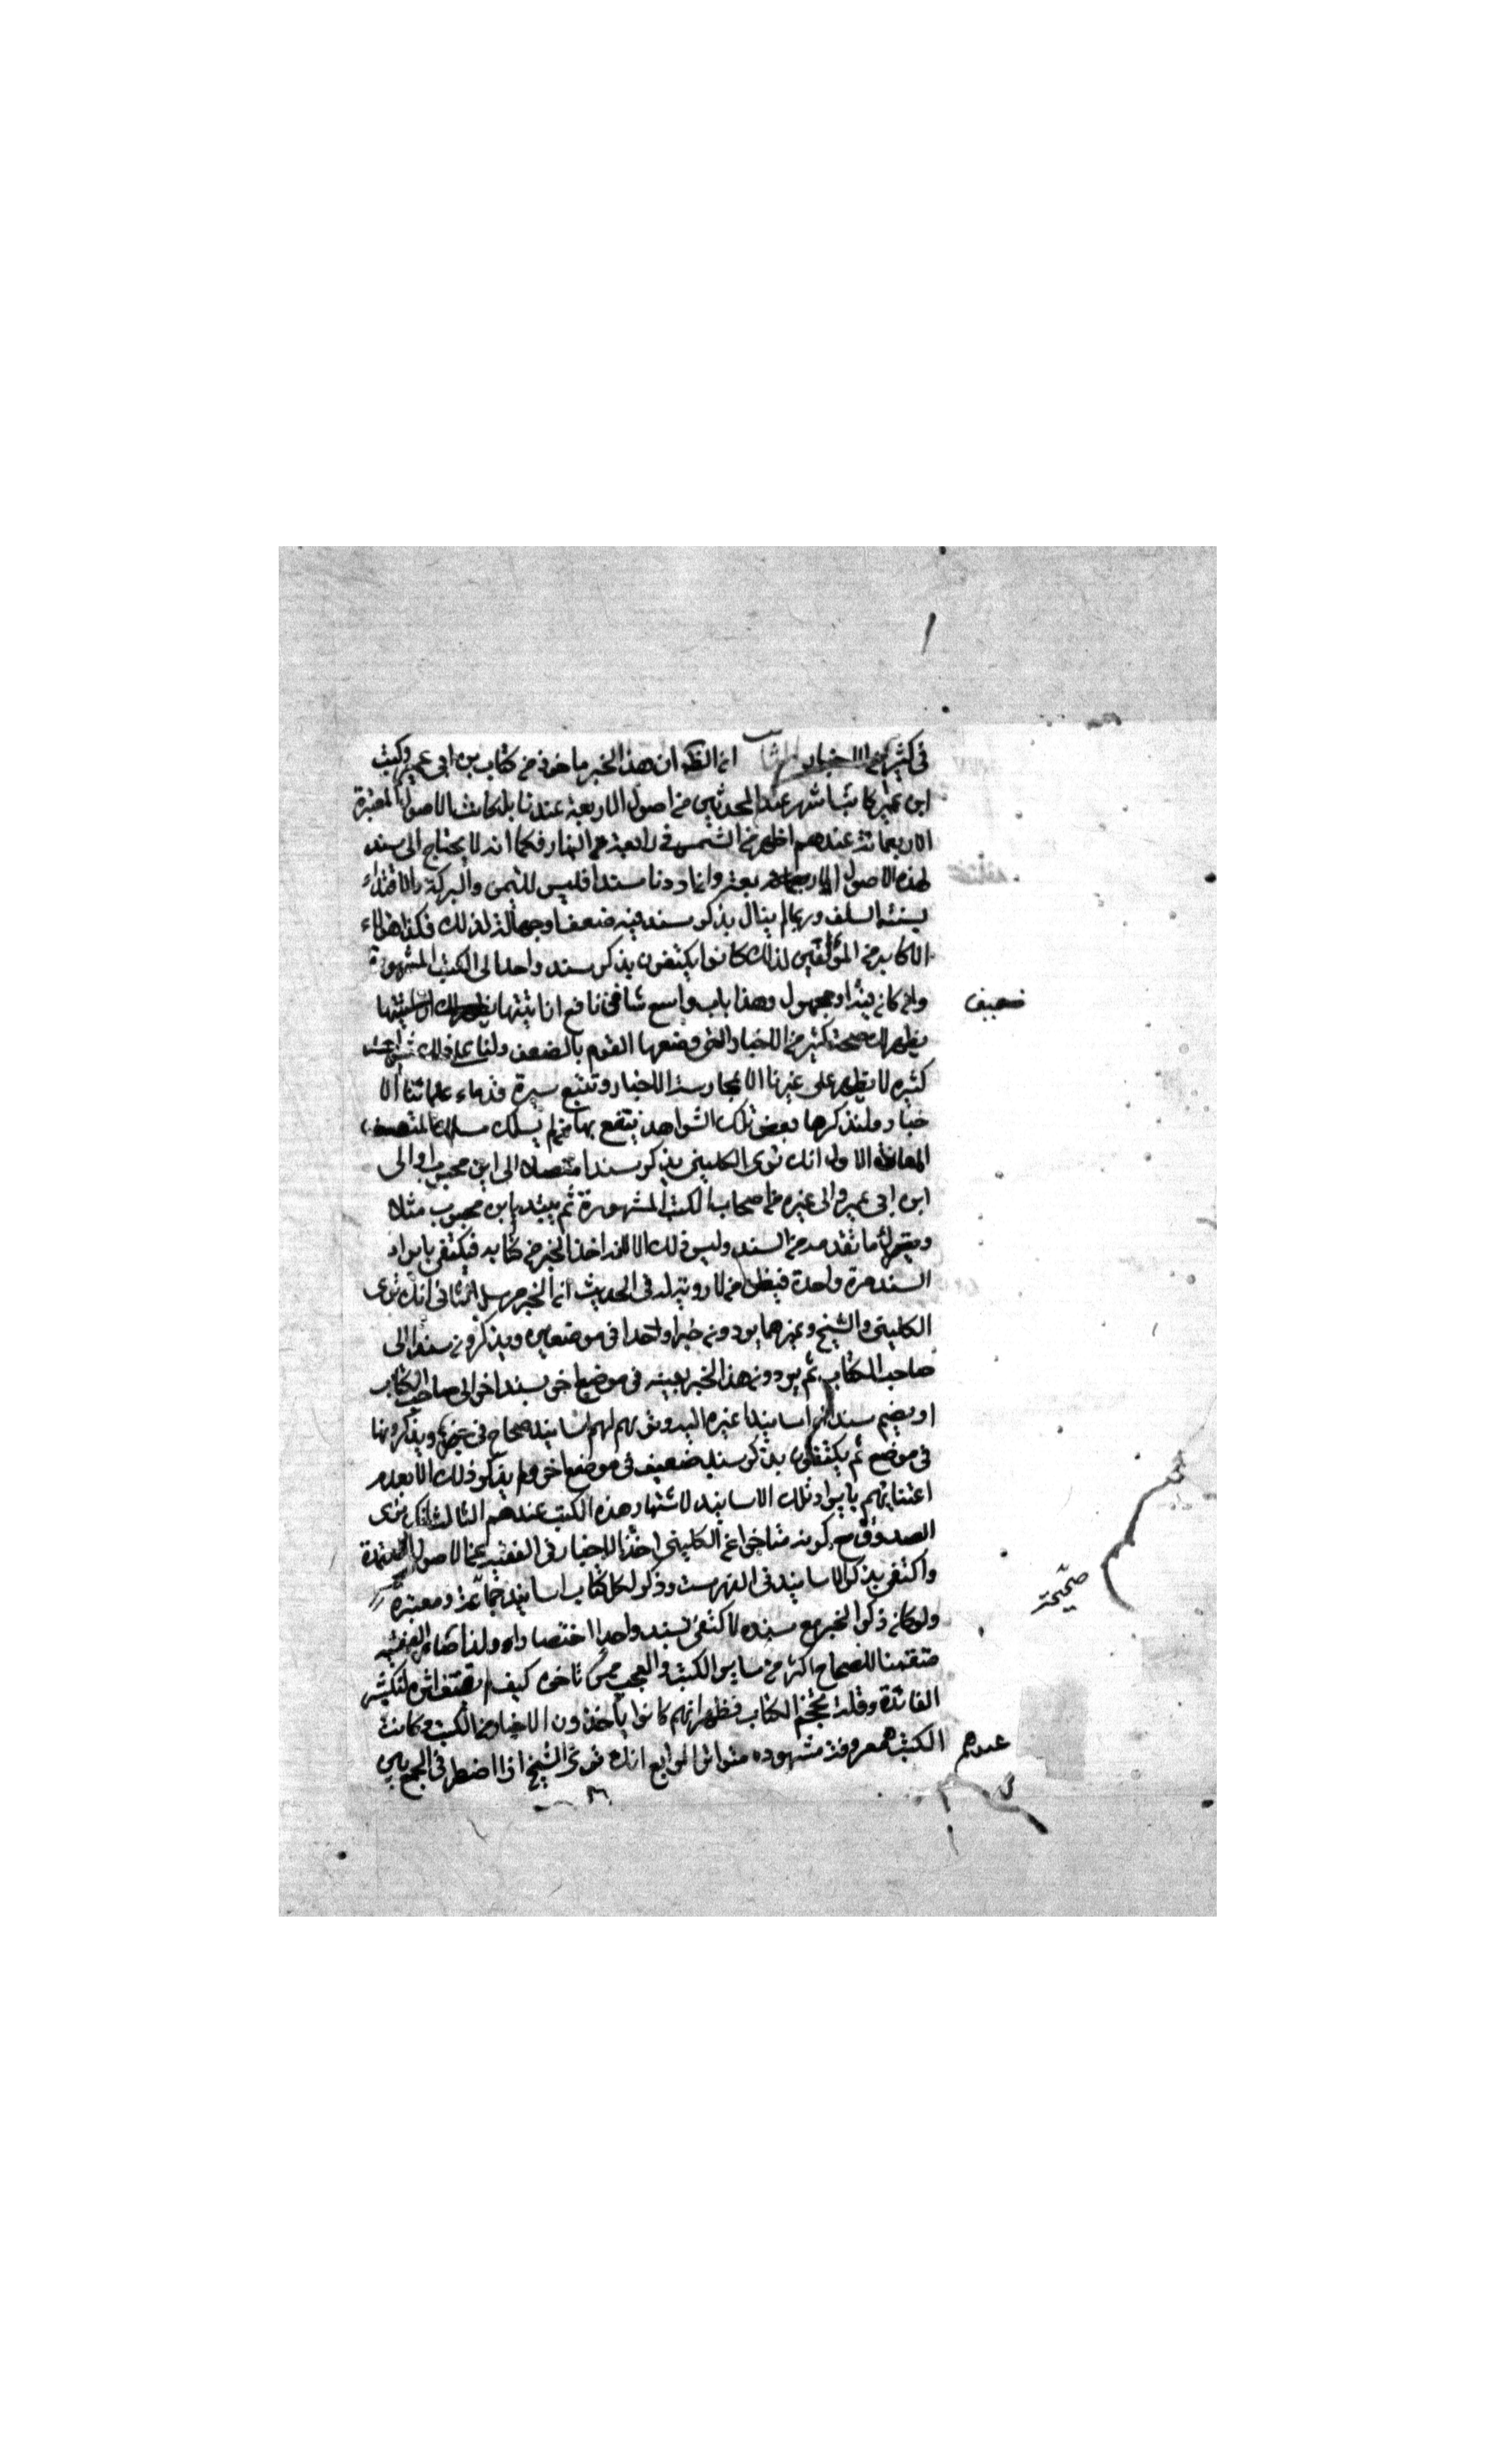 في كثير من الاخبار ان الظ ان هذا الخبر ماخوذ من كتاب بن ابي عمير وكتب
ابن عمير كانت اشهر عند المحدثين من اصول الاربعة عندنا بل كانت الاصول المعتبرة
الاربعمائة عندهم اظهر من الشمس في رابعة النهار فكما انه لا يحتاج الى سند
لهذه الاصول الاربعة وانما اوردنا سندا فليس للتيمن والبركة والاقتداء
بسنة السلف وربما لم ينال بذكر سند فيه ضعف او جهالة لذلك فكذا هؤلاء
الاكابر من المؤلفين لذلك كانوا يكتفون بذكر سند واحد الى الكتب المشهورة
وان كان فيه او مجهول وهذا باب واسع شاف نافع ان اتيتها
ضعيف
يظهر لك صحة كثير من الاخبار التي وصفها القوم بالضعف ولنا على ذلك شواهد
كثيرة لا يظهر على غيرنا الا بممارسة الاخبار وتتبع سيرة قدماء علمائنا الا
خبار ولنذكر ها بعض تلك الشواهد ينتفع بها من لم يسلك مسلك المتعسف
المعاند الاول انك ترى الكليني يذكر سندا متصلا الى ابن محبوب او الى
ابن ابي عمير والى غيره من اصحاب الكتب المشهورة ثم يبتدء بابن محبوب مثلا
ويترك ما تقدمه من السند وليس ذلك الا لانه اخذ الخبر من كتابه فيكتفي بايراد
السند مرة واحدة فيظن من لا روية له في الحديث ان الخبر مرسل الثاني انك ترى
الكليني والشيخ وغيرهما يوردون خبرا واحدا في موضعين ويذكرون سندا الى
صاحب الكتاب ثم يوردون هذا الخبر بعينه في موضع اخر بسند اخر الى صاحب الكتاب
او يضم سندا او اسانيدا غيره اليه وتريهم لهم اسانيد صحاح في خبر ويذكرونها
في موضع ثم يكتفون بذكر سند ضعيف في موضع اخر ولم يذكر ذلك الا لعدم
اعتنائهم بايراد تلك الاسانيد لاشتهار هذه الكتب عندهم الثالث انك ترى
الصدوق مع كونه متاخرا عن الكليني اخذ الاخبار في الفقيه عن الاصول المعتمدة
واكتفى بذكر الاسانيد في الفهرست وذكر لكل كتاب اسانيد ومعتبرة
صحيحة
ولو كان ذكر الخبر مع سنده لاكتفى بسند واحد اختصارا ولذا صار الفقيه
متضمنا للصحاح اكثر من ساير الكتب والعجب ممن تاخره كيف لم يقتف اثره لتكثير
الفائدة وقلة حجم الكتاب فظهر انهم كانوا ياخذون الاخبار من الكتب وكانت
الكتب عندهم معروفة مشهورة متواترة الرابع انك ترى الشيخ اذا اضطر في الجمع بين